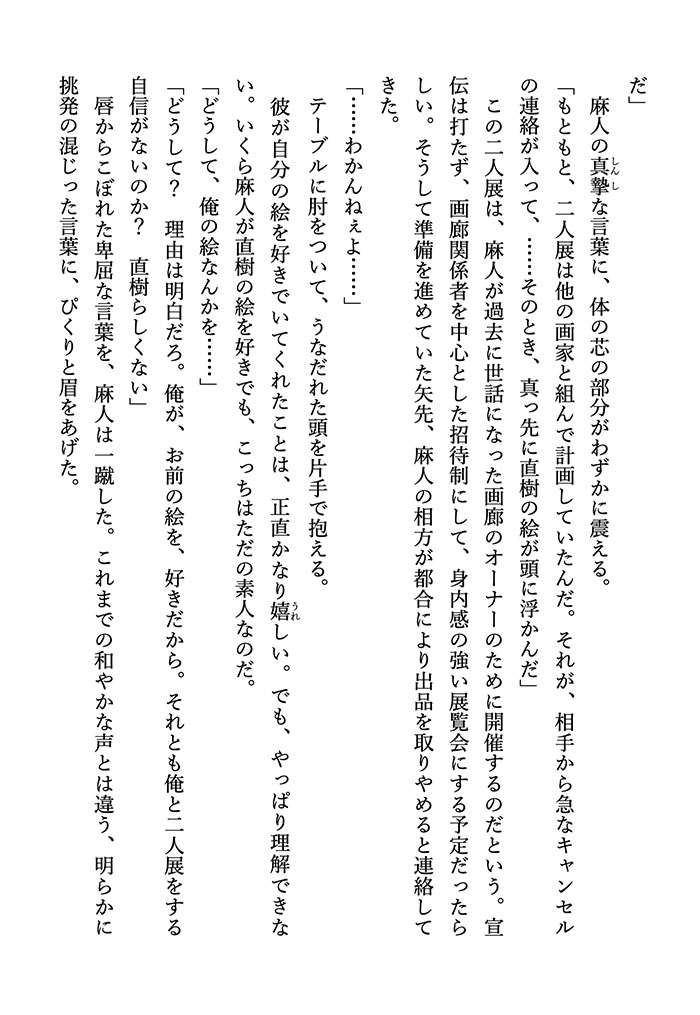 だ」
　麻人の真摯な言葉に、体の芯の部分がわずかに震える。
「もともと、二人展は他の画家と組んで計画していたんだ。それが、相手から急なキャンセル
の連絡が入って、……そのとき、真っ先に直樹の絵が頭に浮かんだ」
　この二人展は、麻人が過去に世話になった画廊のオーナーのために開催するのだという。宣
伝は打たず、画廊関係者を中心とした招待制にして、身内感の強い展覧会にする予定だったら
しい。そうして準備を進めていた矢先、麻人の相方が都合により出品を取りやめると連絡して
きた。
「……わかんねぇよ……」
　テーブルに肘をついて、うなだれた頭を片手で抱える。
　彼が自分の絵を好きでいてくれたことは、正直かなり嬉しい。でも、やっぱり理解できな
い。いくら麻人が直樹の絵を好きでも、こっちはただの素人なのだ。
「どうして、俺の絵なんかを……」
「どうして？　理由は明白だろ。俺が、お前の絵を、好きだから。それとも俺と二人展をする
自信がないのか？　直樹らしくない」
　唇からこぼれた卑屈な言葉を、麻人は一蹴した。これまでの和やかな声とは違う、明らかに
挑発の混じった言葉に、ぴくりと眉をあげた。